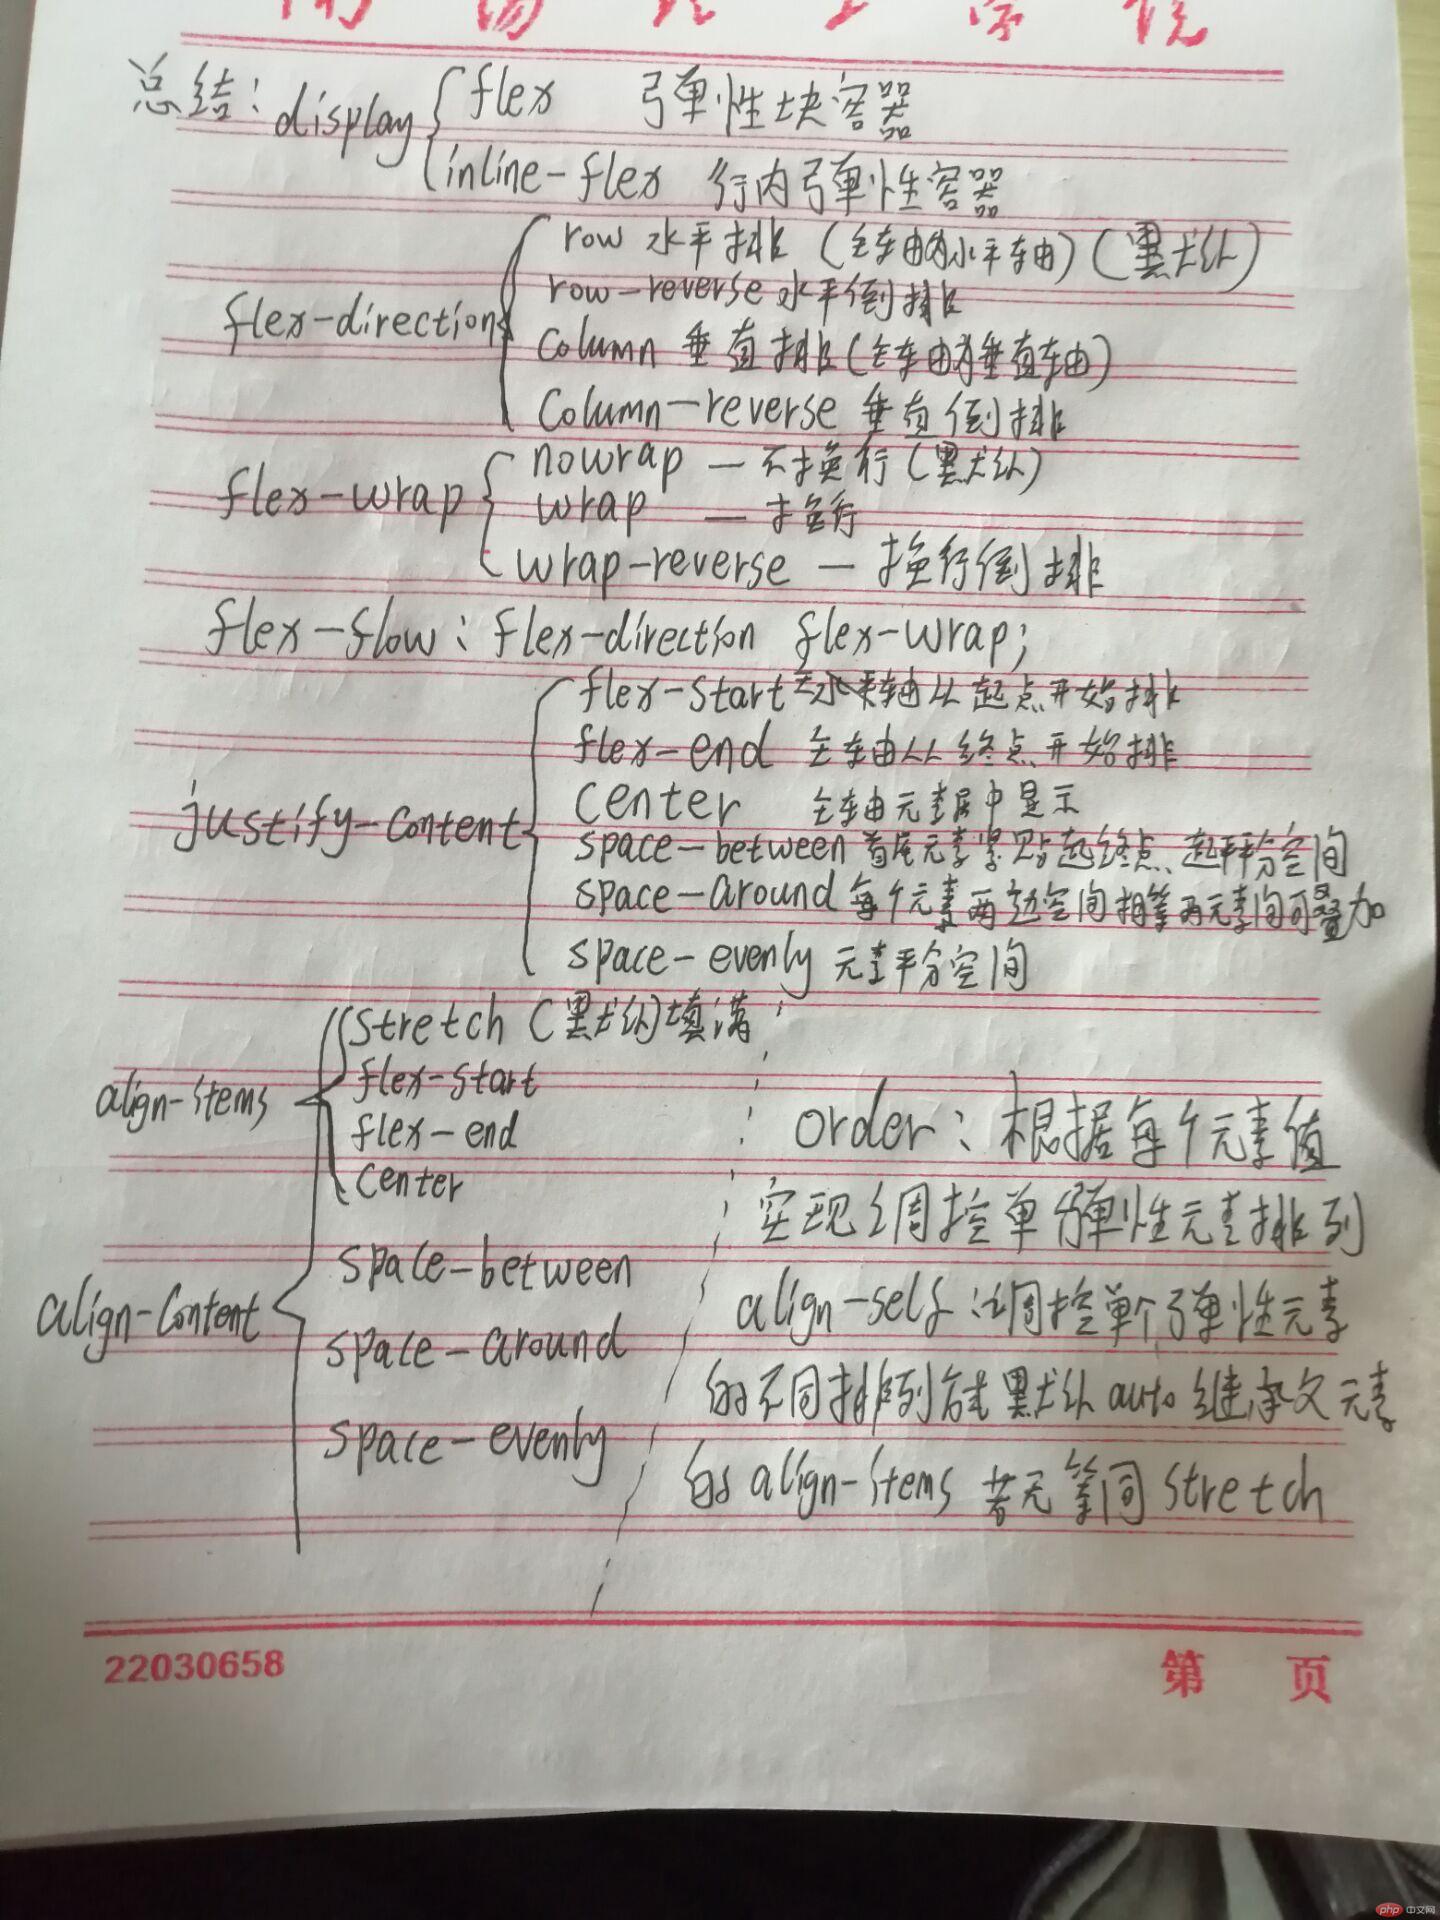 总结:display
flex 弹性块容器
inline-flex 行内弹性容器
flex-direction
row 水平排(主轴为水平轴)(默认)
row-reverse 水平倒排
column 垂直排(主轴为垂直轴)
column-reverse 垂直倒排
flex-wrap
nowrap — 不换行(默认)
wrap — 换行
wrap-reverse — 换行倒排
flex-flow:flex-direction flex-wrap;
justify-content
flex-start 主轴从起点开始排
flex-end 主轴从终点开始排
center 主轴元素居中显示
space-between 首尾元素紧贴起终点、平分空间
space-around 每个元素两边空间相等两元素间可叠加
space-evenly 元素平分空间
align-items
stretch(默认)填满
flex-start
flex-end
center
align-content
space-between
space-around
space-evenly
order:根据每个元素值
实现调控单弹性元素排列
align-self:调控单个弹性元素
的不同排列 默认auto继承父元素
的align-items 若无等同stretch
22030658
第 页
php 中文网